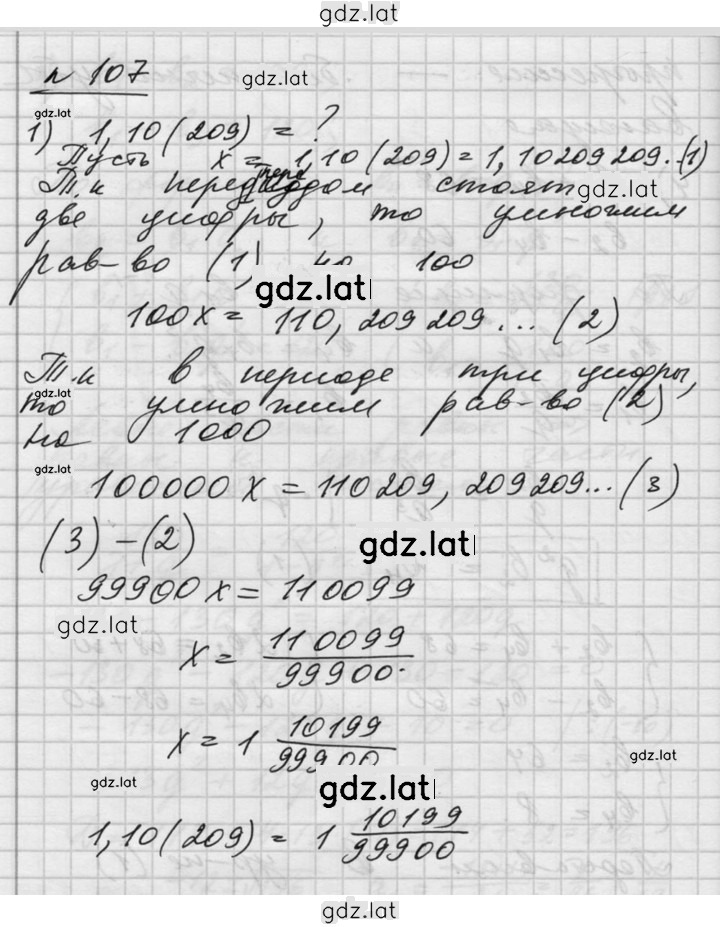 gdz.lat
n 107
gdz.lat
gdz.lat
1) 1,10(209) = ?
Пусть x = 1,10(209) = 1,10209209..(1)
Т.к перед периодом стоят
gdz.lat
две цифры, то умножим
рав-во (1) на 100
gdz.lat
100x = 110,209209... (2)
Т.к в периоде три цифры,
gdz.lat
то умножим рав-во (2)
на 1000
gdz.lat
100000x = 110209,209209... (3)
(3) - (2)
gdz.lat
99900x = 110099
gdz.lat
x = 110099/99900.
x = 1 10199/99900
gdz.lat
gdz.lat
gdz.lat
1,10(209) = 1 10199/99900
gdz.lat